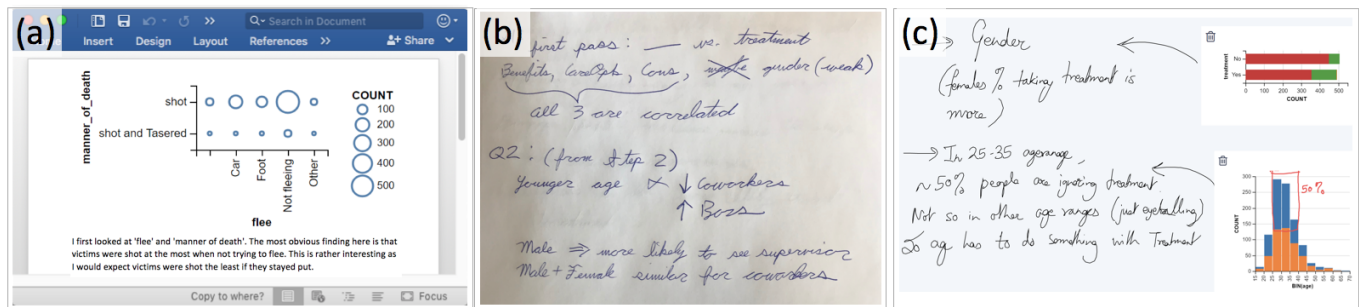 (a)
Search in Document
Insert Design Layout References >> Share
manner_of_death
shot
shot and Tasered
Car
Foot
Not fleeing
Other
flee
COUNT
100
200
300
400
500
I first looked at 'flee' and 'manner of death'. The most obvious finding here is that
victims were shot at the most when not trying to flee. This is rather interesting as
I would expect victims were shot the least if they stayed put.
Copy to where? Focus
(b)
first pass: — vs. treatment
Benefits, CareOpts, Cons, gender (weak)
all 3 are correlated
Q2: (from Step 2)
Younger age ↓ Coworkers
↑ Boss
Male ⇒ more likely to see supervisor
Male + Female similar for coworkers
(c)
→ Gender
(females % taking treatment is
more)
→ In 25-35 age range,
~50% people are ignoring treatment.
Not so in other age ranges (just eyeballing)
So age has to do something with Treatment
treatment
No
Yes
0 100 200 300 400 500
COUNT
50%
COUNT
300
250
200
150
100
50
0
15 20 25 30 35 40 45 50 55 60 65 70
BIN(age)